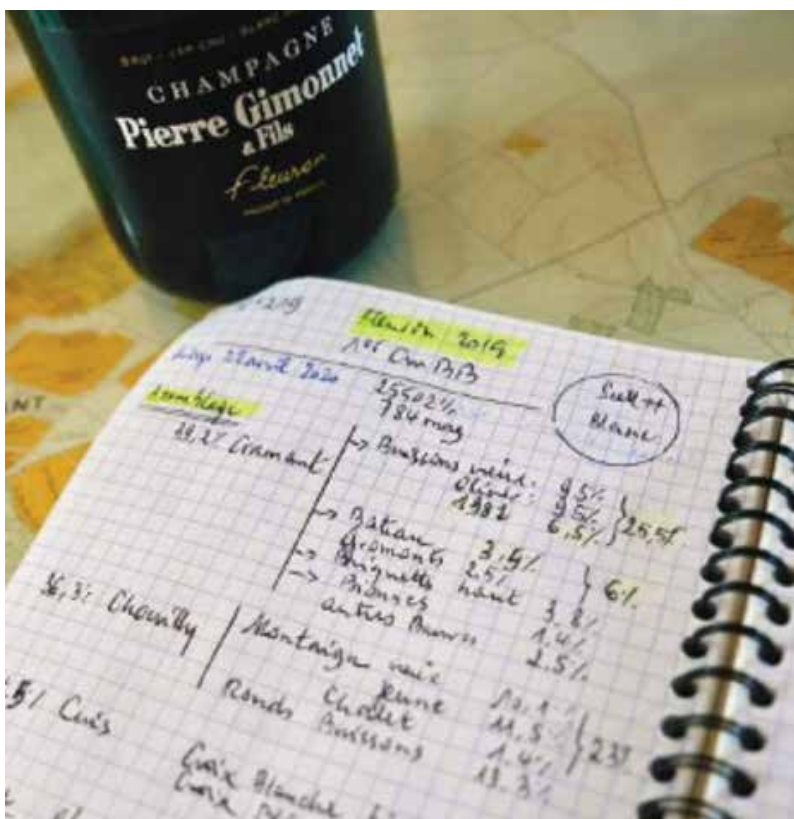 BRUT - 1ER CRU - BLANC
CHAMPAGNE
Pierre Gimonnet
& Fils
Fleuron
PRODUCT OF FRANCE
Fleuron 2019
1er Cru BB
tirage 22 avril 2020
25502
784 mag
Assemblage
39,2% Cramant
→ Buissons vieil. 9.5%
Olivier: 9.5%
1981 6,5% } 25,5%
→ Bateau 3.5%
Gromonts 2.5% } 6%
→ Briquettes haut 3.8%
→ Bionnes 1.4%
autres 2.5%
36,3% Chouilly
Montaigu vieil
Jeune 11.5% } 23%
Chalet 1.4%
Ronds Buissons 13.3%
5% Cuis
Croix Blanche
Croix
Blanc
ANT